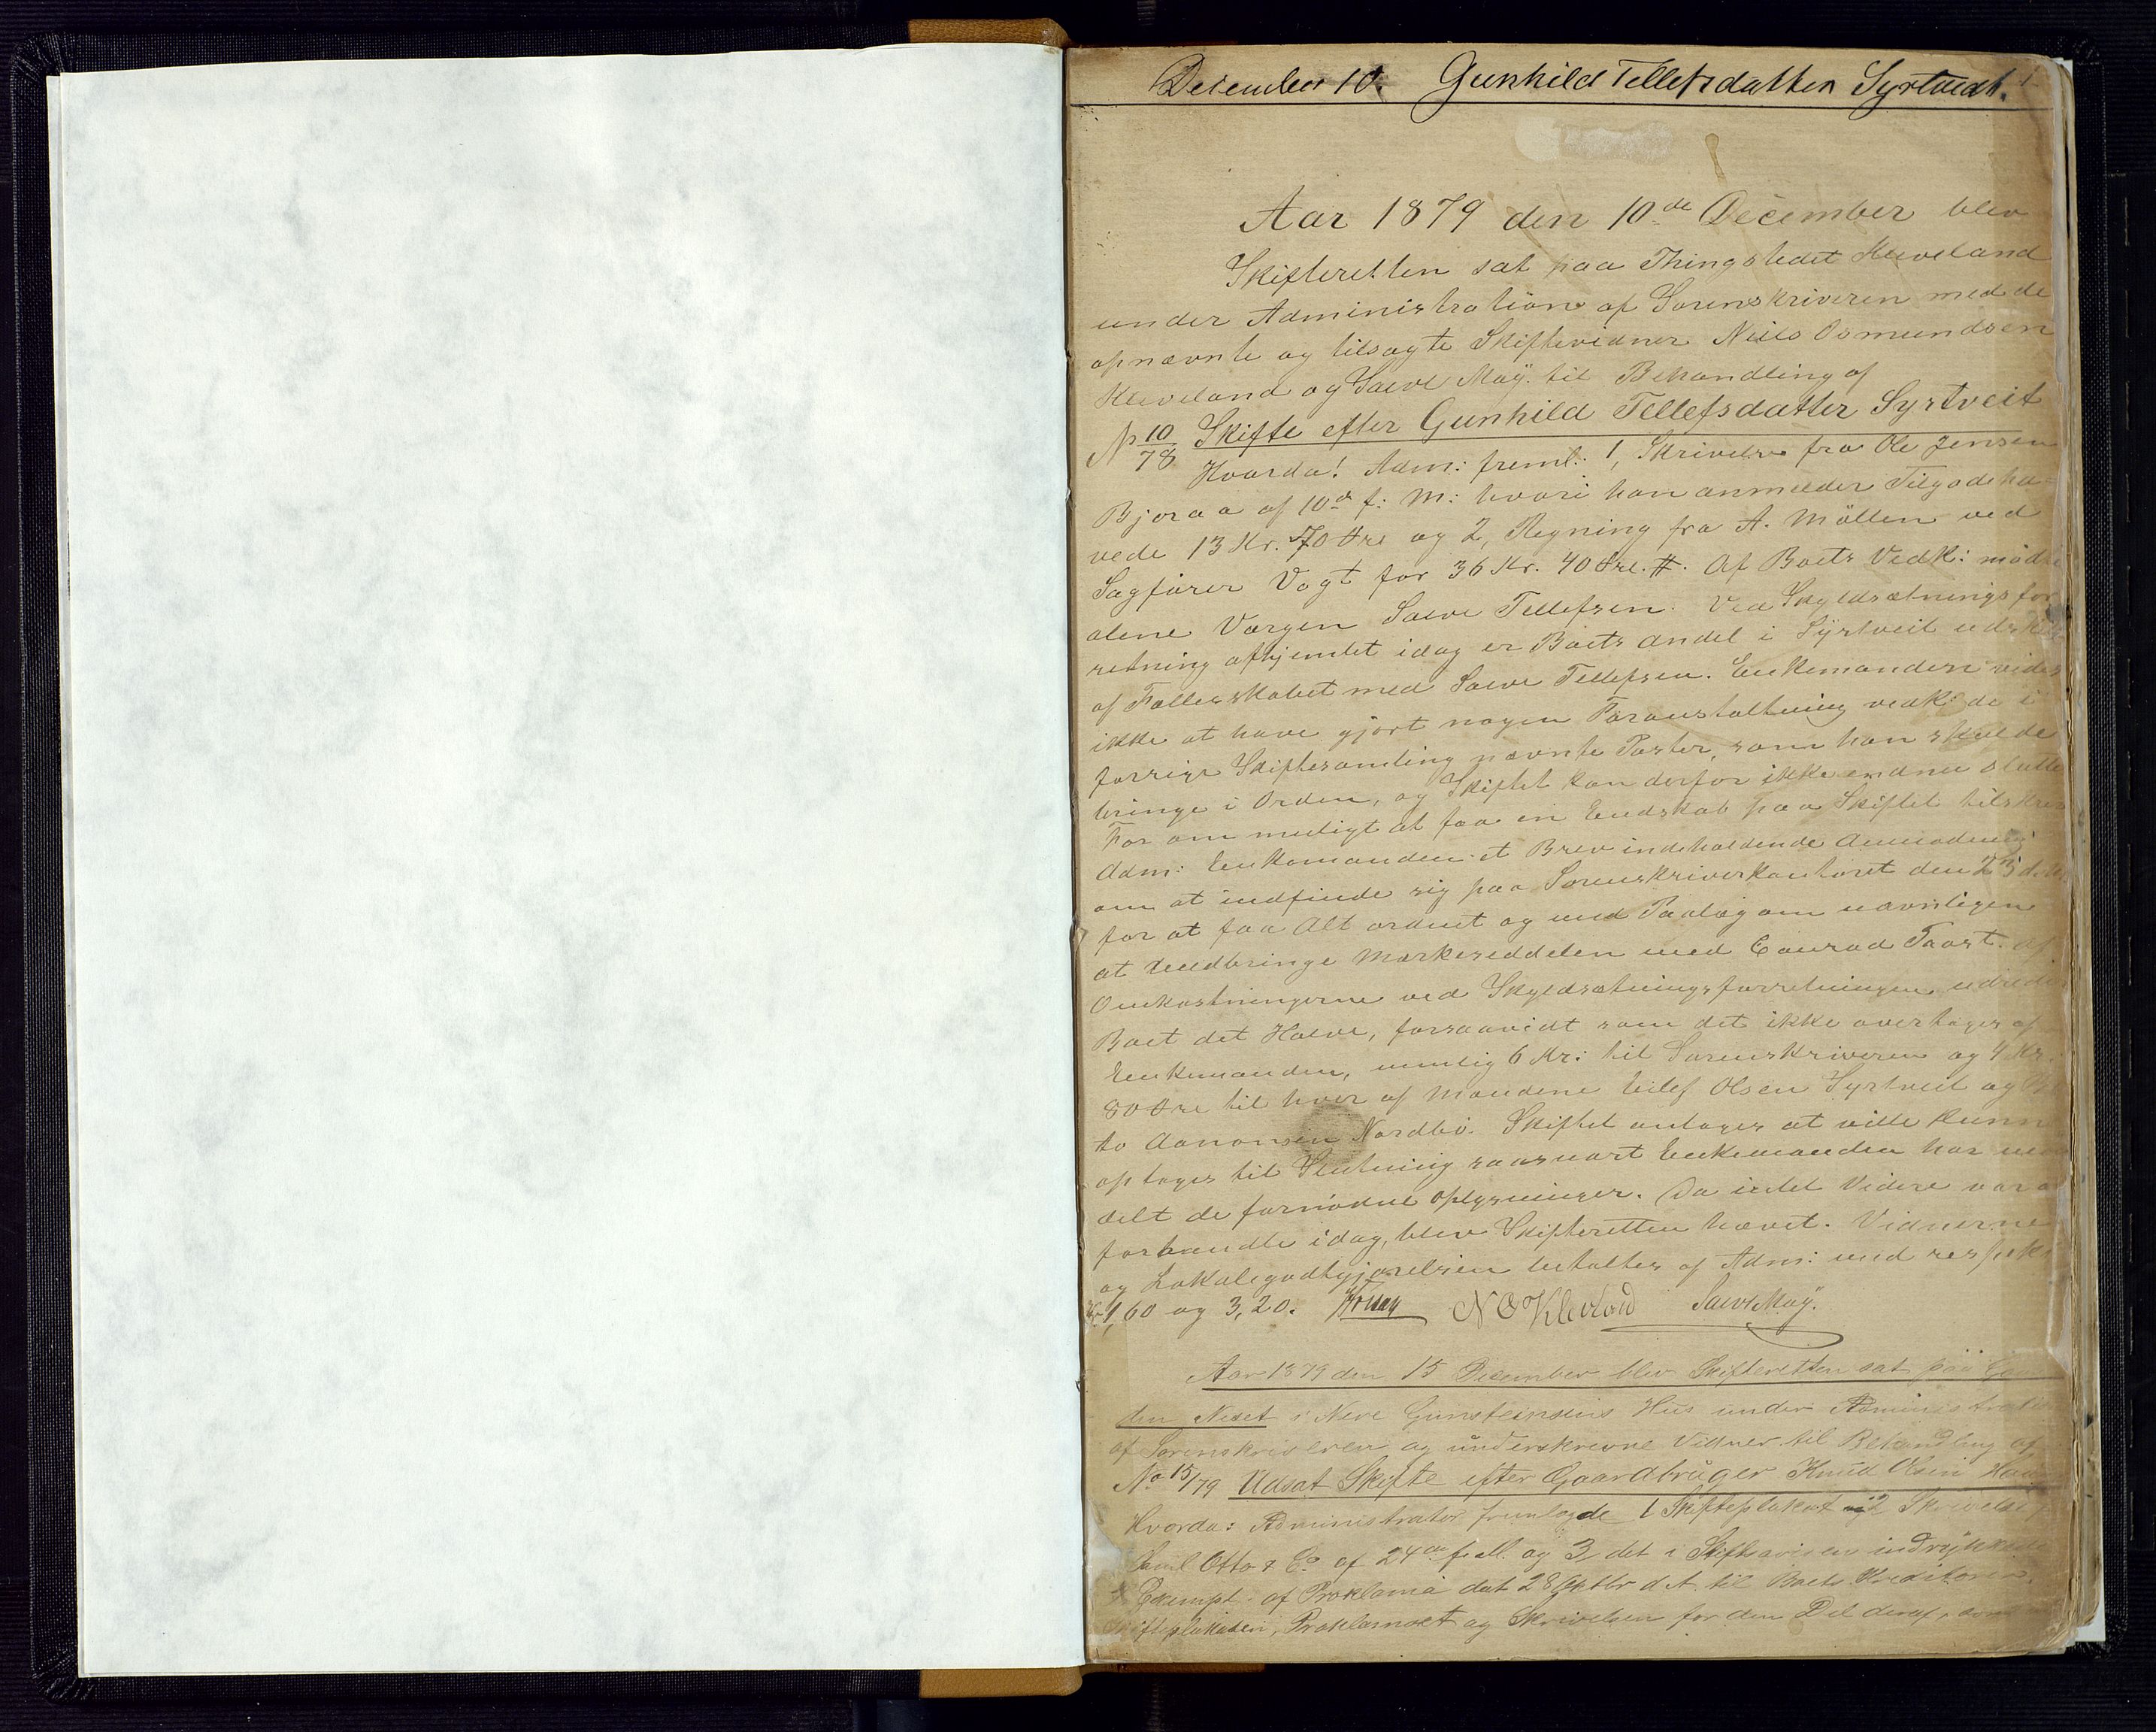 December 10. Gunhild Tellefsdatter Syrtveit. 1
Aar 1879 den 10de December blev
Skifteretten sat paa Thingstedet Kleveland
under Administration af Sorenskriveren med de
opnævnte og tilsagte Skiftevidner Niels Osmundsen
Kleveland og Salve Moÿ. til Behandling af
No 10/78 Skifte efter Gunhild Tellefsdatter Syrtveit
Hvorda! Adm: freml: 1, Skrivelse fra Ole Jensen
Bjoraa af 10de f: M: hvori han anmelder Tilgodeha-
vede 13 Kr. 70 Øre og 2, Regning fra A. Møllen ved
Sagfører Vogt for 36 Kr. 40 Øre. #. Af Boets Vedk: mødte
alene Værgen Salve Tellefsen. Ved Skyldsætningsfor
retning afhjemlet idag er Boets Andel i Syrtveit udskilt
af Fællesskabet med Salve Tellefsen. Enkemanden vides
ikke at have gjort nogen Foranstaltning vedk: de i
forrige Skiftesamling nævnte Poster, som han skulde
bringe i Orden, og Skiftet kan derfor ikke endnu slutte
For om muligt at faa en Endskab paa Skiftet tilskrev
Adm: Enkemanden et Brev indeholdende Anmodning
om at indfinde sig paa Sorenskriverkontoret den 23 d.
for at faa Alt ordnet og med Paalæg om navnligen
at medbringe Markeseddelen med Conrad Taast. Af
Omkostningerne ved Skyldsætningsforretningen udreder
Boet det Halve, forsaavidt som det ikke overtages af
Enkemanden, nemlig 6 Kr: til Sorenskriveren og 4 Kr
80 Øre til hver af Mændene Eilef Olsen Syrtveit og
to Aanonsen Nordbø. Skiftet antages at ville kunn
optages til Slutning saasnart Enkemanden har med
delt de fornødne Oplysninger. Da intet Videre var at
forhandle idag, blev Skifteretten hævet. Vidnerne
og Lokalegodtgjørelsen betaltes af Adm: med respekt
Kr 1,60 og 3,20. N O Kleveland Salve Moÿ.
Aar 1879 den 15 December blev Skifteretten sat paa Gaar
den Neset i Neri Gunsteinsens Hus under Administration
af Sorenskriveren og underskrevne Vidner til Behandling af
No 15/79 Udsat Skifte efter Gaardbruger Knud Olsen
Hvorda: Administrator fremlagde 1 Skifteplakat 2 Skrivelse
Emil Otto & Co af 24de f. M. og 3 det i Stiftsavisen indrykkede
Exempl. af Proklama dat 28 Oktbr d. A. til Boets Kreditorer.
Skifteplakaten, Proklamaet og Skrivelsen for den Del deraf, som